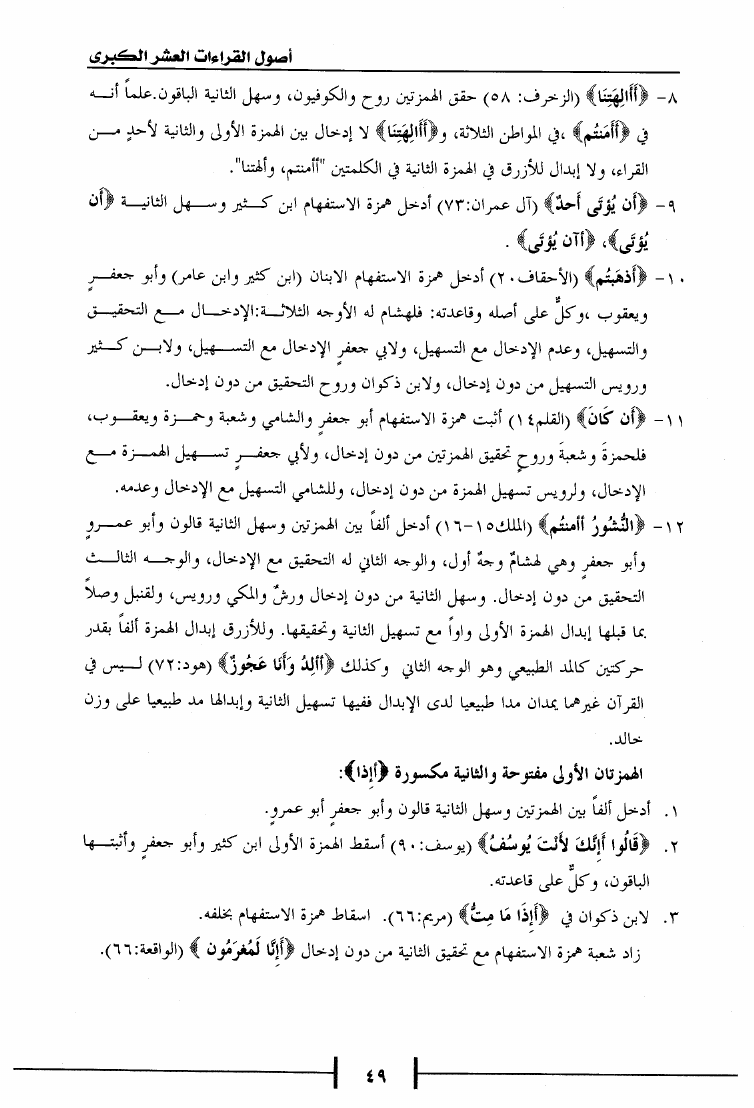 أصول القراءات العشر الكبرى
٨- ﴿أَأَالِهَتِنَا﴾ (الزخرف: ٥٨) حقق الهمزتين روح والكوفيون، وسهل الثانية الباقون.علماً أنه
في ﴿أَأَمَنتُم﴾ ،في المواطن الثلاثة، و﴿أَأَالِهَتِنَا﴾ لا إدخال بين الهمزة الأولى والثانية لأحدٍ من
القراء، ولا إبدال للأزرق في الهمزة الثانية في الكلمتين "أأمنتم، وألهتنا".
٩- ﴿أَن يُؤتَى أَحدٌ﴾ (آل عمران:٧٣) أدخل همزة الاستفهام ابن كثير وسهل الثانية ﴿أَن
يُؤتَى﴾، ﴿أآن يُؤتَى﴾ .
١٠- ﴿أَذهَبتُم﴾ (الأحقاف٢٠) أدخل همزة الاستفهام الابنان (ابن كثير وابن عامر) وأبو جعفرٍ
ويعقوب ،وكلٌّ على أصله وقاعدته: فلهشام له الأوجه الثلاثة:الإدخال مع التحقيق
والتسهيل، وعدم الإدخال مع التسهيل، ولابي جعفرٍ الإدخال مع التسهيل، ولابن كثير
ورويس التسهيل من دون إدخال، ولابن ذكوان وروح التحقيق من دون إدخال.
١١- ﴿أَن كَانَ﴾ (القلم١٤) أثبت همزة الاستفهام أبو جعفرٍ والشامي وشعبة وحمزة ويعقوب،
فلحمزةَ وشعبةَ وروحٍ تحقيق الهمزتين من دون إدخال، ولأبي جعفرٍ تسهيل الهمزة مع
الإدخال، ولرويس تسهيل الهمزة من دون إدخال، وللشامي التسهيل مع الإدخال وعدمه.
١٢- ﴿النُّشُورُ أأمنتُم﴾ (الملك١٥-١٦) أدخل ألفاً بين الهمزتين وسهل الثانية قالون وأبو عمروٍ
وأبو جعفرٍ وهي لهشامٌ وجهٌ أول، والوجه الثاني له التحقيق مع الإدخال، والوجه الثالث
التحقيق من دون إدخال. وسهل الثانية من دون إدخال ورشٌ والمكي ورويس، ولقنبل وصلاً
بما قبلها إبدال الهمزة الأولى واواً مع تسهيل الثانية وتحقيقها. وللأزرق إبدال الهمزة ألفاً بقدر
حركتين كالمد الطبيعي وهو الوجه الثاني وكذلك ﴿أَألِدُ وَأَنَا عَجُوزٌ﴾ (هود:٧٢) ليس في
القرآن غيرهما يمدان مدا طبيعيا لدى الإبدال ففيها تسهيل الثانية وإبدالها مد طبيعيا على وزن
خالد.
الهمزتان الأولى مفتوحة والثانية مكسورة ﴿أإذا﴾:
١. أدخل ألفاً بين الهمزتين وسهل الثانية قالون وأبو جعفرٍ أبو عمروٍ.
٢. ﴿قَالُوا أَإِنَّكَ لأَنْتَ يُوسُفُ﴾ (يوسف:٩٠) أسقط الهمزة الأولى ابن كثير وأبو جعفرٍ وأثبتها
الباقون، وكلٌّ على قاعدته.
٣. لابن ذكوان في ﴿أَإِذَا مَا مِتُّ﴾ (مريم:٦٦). اسقاط همزة الاستفهام بخلفه.
زاد شعبة همزة الاستفهام مع تحقيق الثانية من دون إدخال ﴿أَإِنَّا لَمُغرَمُون﴾ (الواقعة:٦٦).
٤٩